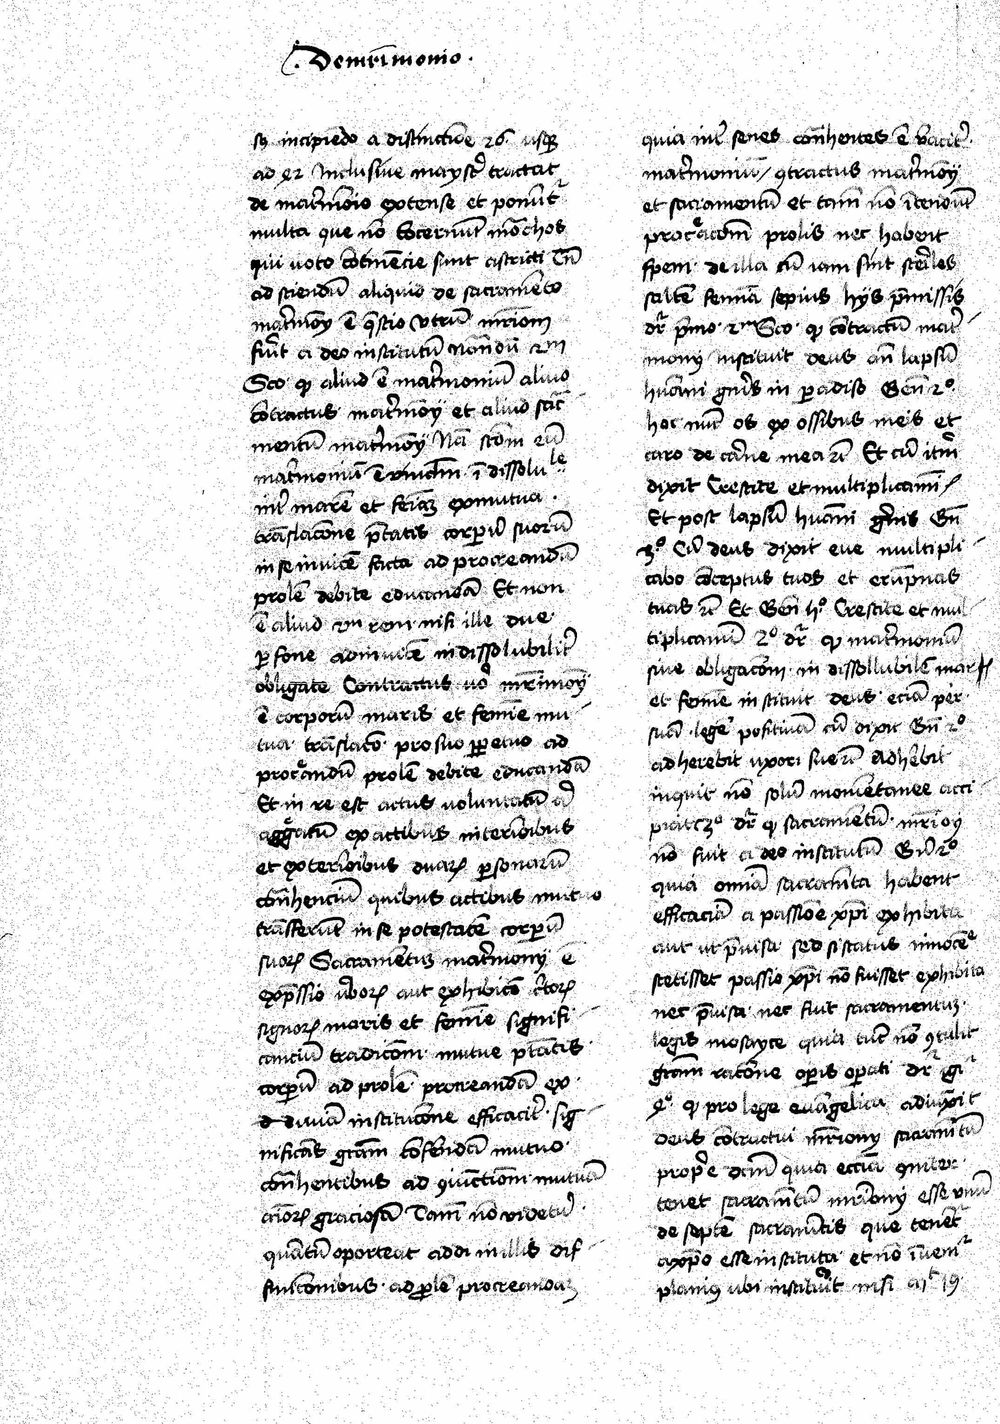 . De mrimonio .
sz incipiendo a distinctione 26 usque
ad 42 Inclusive magister tractat
de matrimonio extense et ponuntur
multa que non concernunt monachos
qui voto continencie sunt astricti Tamen
ad sciendum aliquid de sacramento
matrimonij est questio Utrum mrimonium
fuerit a deo institutum 2m
Sco quod aliud est matrimonium aliud
contractus matrimonij et aliud sacra
mentum matrimonij Nam secundum eum
matrimonium est vinculum indissolubile
inter marem et feminam ex mutua .
translacione potestatis corporum suorum
in se invicem facta ad procreandam
prolem debite educandam Et non
est aliud vinculum nisi ille due
persone adinvicem indissolubiliter
obligate Contractus vero mrimonij
est corporum maris et femine mu
tua translacio pro suo perpetuo ad
procreandum prolem debite educandam
Et in re est actus voluntatum
aggregatum ex actibus interioribus
et exterioribus duarum personarum
contrahencium quibus actibus mutuo
transferunt in se potestatem corporum
suorum Sacramentum matrimonij est
expressio verborum aut exhibicio certorum
signorum maris et femine signifi
cancium tradicionem mutue potestatis
corporum ad prolem procreandam ex
divina institucione efficaciter sig
nificans graciam conferendam mutuo
contrahentibus ad coniunctionem mutuam
animorum graciosam Tamen non videtur
quantum oporteat addi in illis dif
finicionibus ad prolem procreandam
quia inter senes contrahentes est
matrimonium / contractus matrimonij
et sacramentum et tamen non intendunt
procreacionem prolis nec habent
spem de illa cum iam sint steriles
saltem femina sepius hijs premissis
dicitur primo 2m Sco quod contractum matri
monij instituit deus ante lapsum
humani generis in paradiso Gen 2o
hoc nunc os ex ossibus meis et
caro de carne mea etc Et cum iterum
dixit Crescite et multiplicamini
Et post lapsum humani generis Gen
3o Cum deus dixit eve multipli
cabo conceptus tuos et erumpnas
tuas etc Et Gen Crescite et mul
tiplicamini 2o dicitur quod matrimonium
sive obligacionem indissollubilem maris
et femine instituit deus eciam per
suam legem positivam cum dixit Gen 2o
adherebit uxori sue etc Adherebit
inquit non solum momentanee acci
piatur 3o dicitur quod sacramentum mrimonij
non fuit a deo institutum Gen 2o
quia omnia sacramenta habent
efficaciam a passione christi exhibita
aut ut previsa sed si status innocentie
stetisset passio christi non fuisset exhibita
nec previsa nec fuit sacramentum
legis mosayce quia tunc non contulit
graciam racione operis operati dicitur igitur
4o quod pro lege evangelica adiunxit
deus contractui mrimonij sacramentum
proprie dictum quia ecclesia
tenet sacramentum mrimonij esse unum
de septem sacramentis que tenentur
a christo esse instituta et non invenitur
planius ubi instituit nisi 19